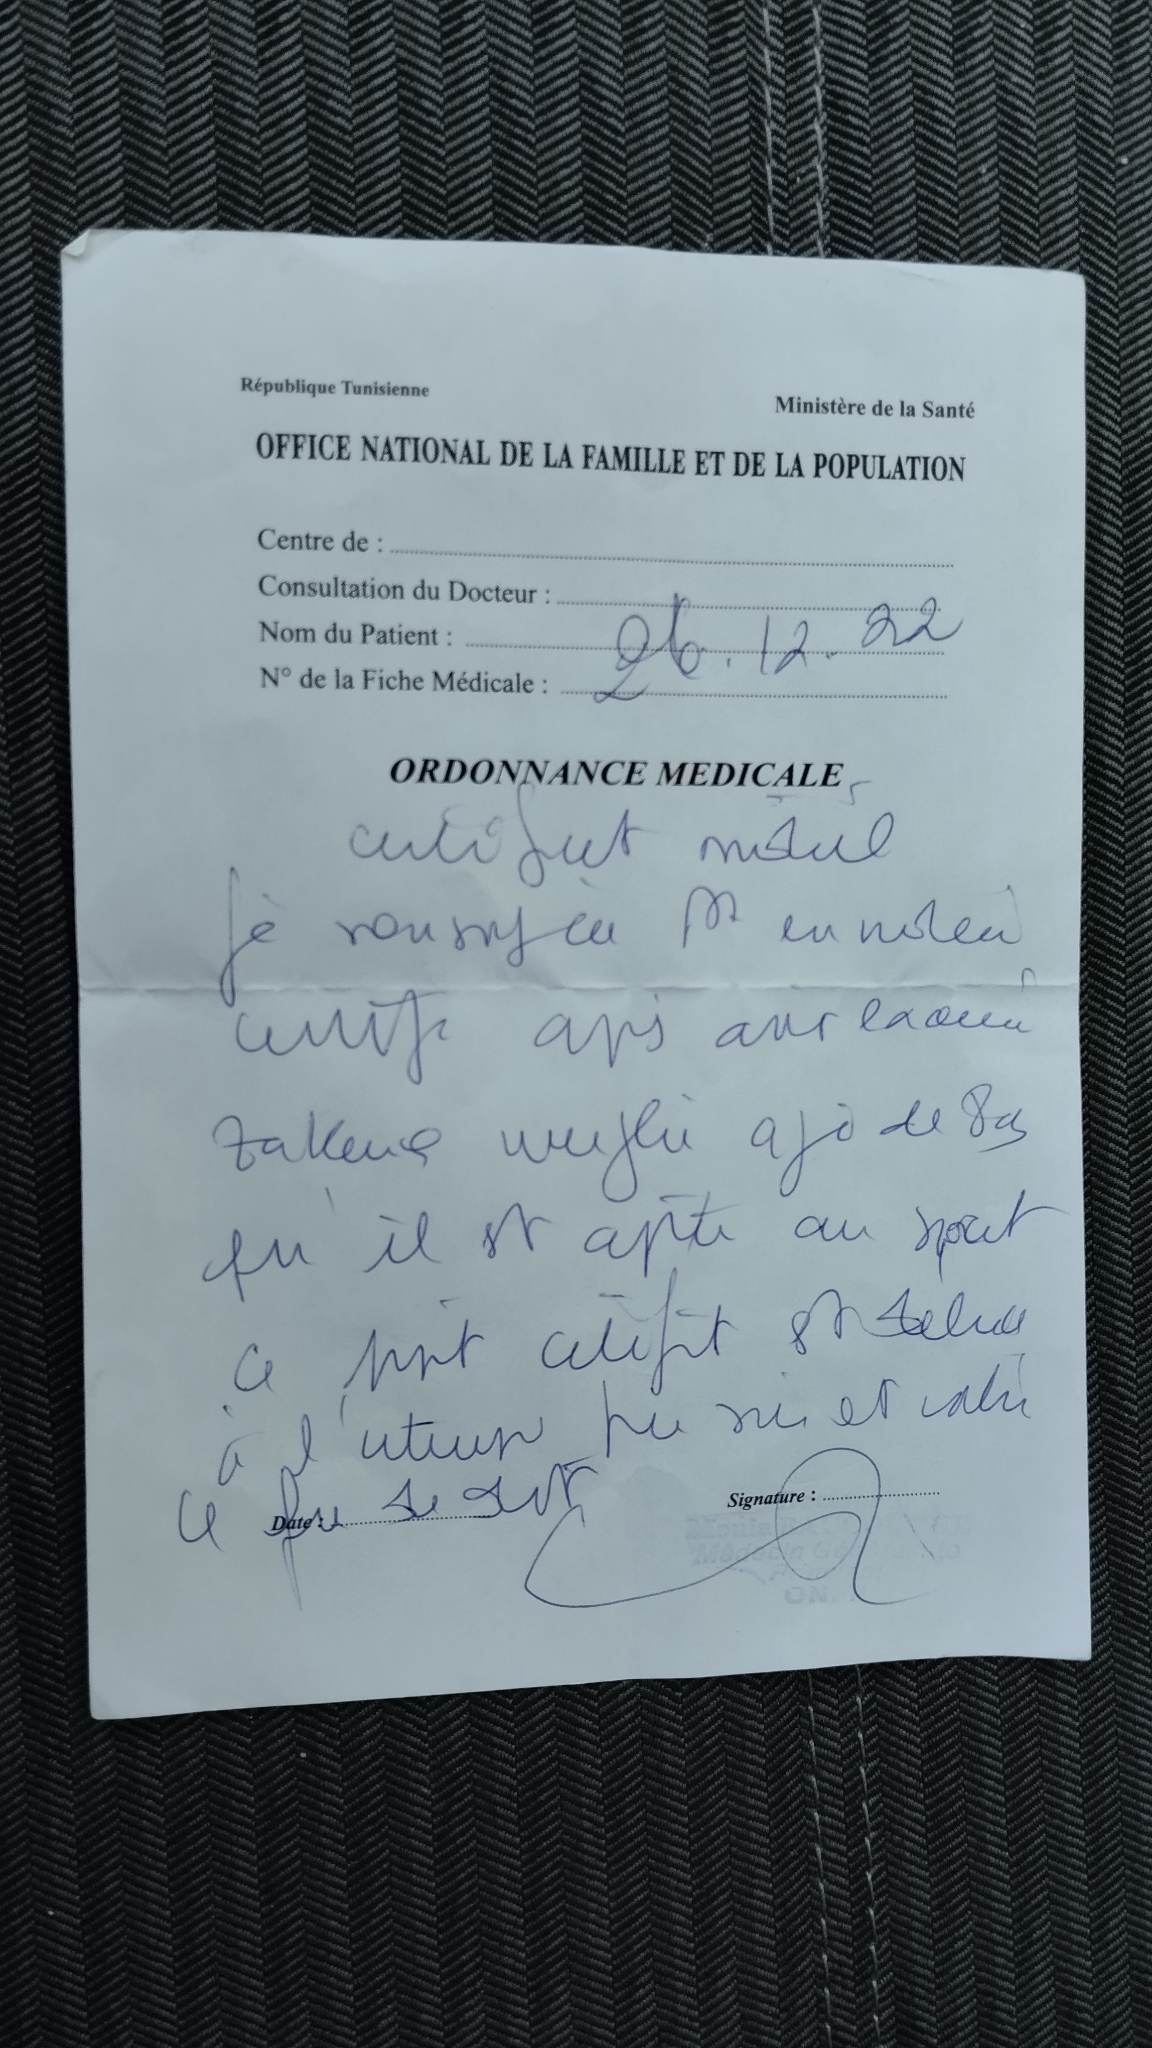 République Tunisienne
Ministère de la Santé
OFFICE NATIONAL DE LA FAMILLE ET DE LA POPULATION
Centre de :
Consultation du Docteur :
Nom du Patient :
N° de la Fiche Médicale :
26.12.22
ORDONNANCE MEDICALE
certificat médical
Je soussigné Dr
certifie après avoir examiné
de 8 ans
qu'il est apte au sport
ce présent certificat est délivré
à l'intéressé pour servir et valoir
ce que de droit
Date :
Signature :